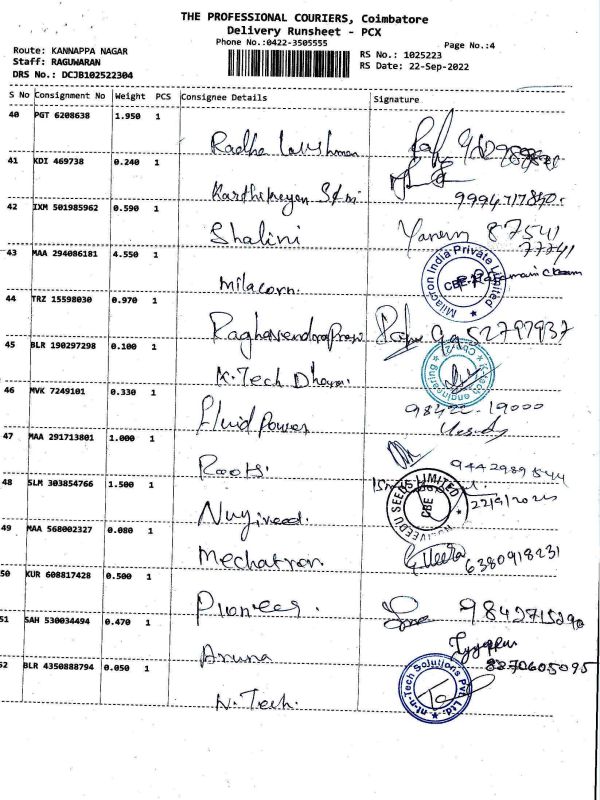 THE PROFESSIONAL COURIERS, Coimbatore
Delivery Runsheet - PCX
Phone No.:0422-3505555
Page No.:4
Route: KANNAPPA NAGAR
Staff: RAGUWARAN
DRS No.: DCJB102522304
RS No.: 1025223
RS Date: 22-Sep-2022
S No Consignment No Weight PCS Consignee Details Signature
40 PGT 6208638 1.950 1
Radha
41 KDI 469738 0.240 1
Karthikeyan
9994717840
42 IXM 501985962 0.590 1
Shalini 87541
77741
43 MAA 294086181 4.550 1
Milacron India Private Limited
CBE
Milacorn.
44 TRZ 15598030 0.970 1
9952797937
45 BLR 190297298 0.100 1
K.Tech
46 MVK 7249101 0.330 1
98422-19000
Fluid Power
47 MAA 291713801 1.000 1
Roots.
48 SLM 303854766 1.500 1
NUZIVEEDU SEEDS LIMITED
CBE
49 MAA 568002327 0.080 1
Mechatron
6380918231
50 KUR 608817428 0.500 1
Pioneer. 9842715290
51 SAH 530034494 0.470 1
Aruna
8270605095
52 BLR 4350888794 0.050 1
N.Tech.